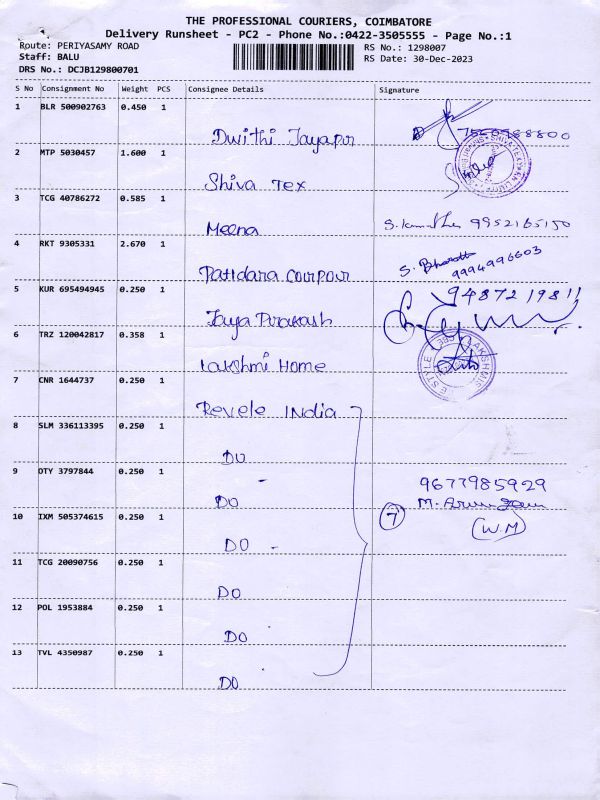 THE PROFESSIONAL COURIERS, COIMBATORE
Delivery Runsheet - PC2 - Phone No.:0422-3505555 - Page No.:1
Route: PERIYASAMY ROAD
RS No.: 1298007
Staff: BALU
RS Date: 30-Dec-2023
DRS No.: DCJB129800701
S No Consignment No Weight PCS Consignee Details Signature
1 BLR 500902763 0.450 1
Dwithi Jayapur
2 MTP 5030457 1.600 1
Shiva Tex
3 TCG 40786272 0.585 1
Meena 9952165150
4 RKT 9305331 2.670 1
Patidara courpour S. Bharath
9994996603
5 KUR 695494945 0.250 1
9487219811
Jaya Prakash
6 TRZ 120042817 0.358 1
Lakshmi Home
7 CNR 1644737 0.250 1
Revele India
8 SLM 336113395 0.250 1
DO
9 OTY 3797844 0.250 1
9677985929
DO
10 IXM 505374615 0.250 1
7
(W.M)
DO
11 TCG 20090756 0.250 1
DO
12 POL 1953884 0.250 1
DO
13 TVL 4350987 0.250 1
DO